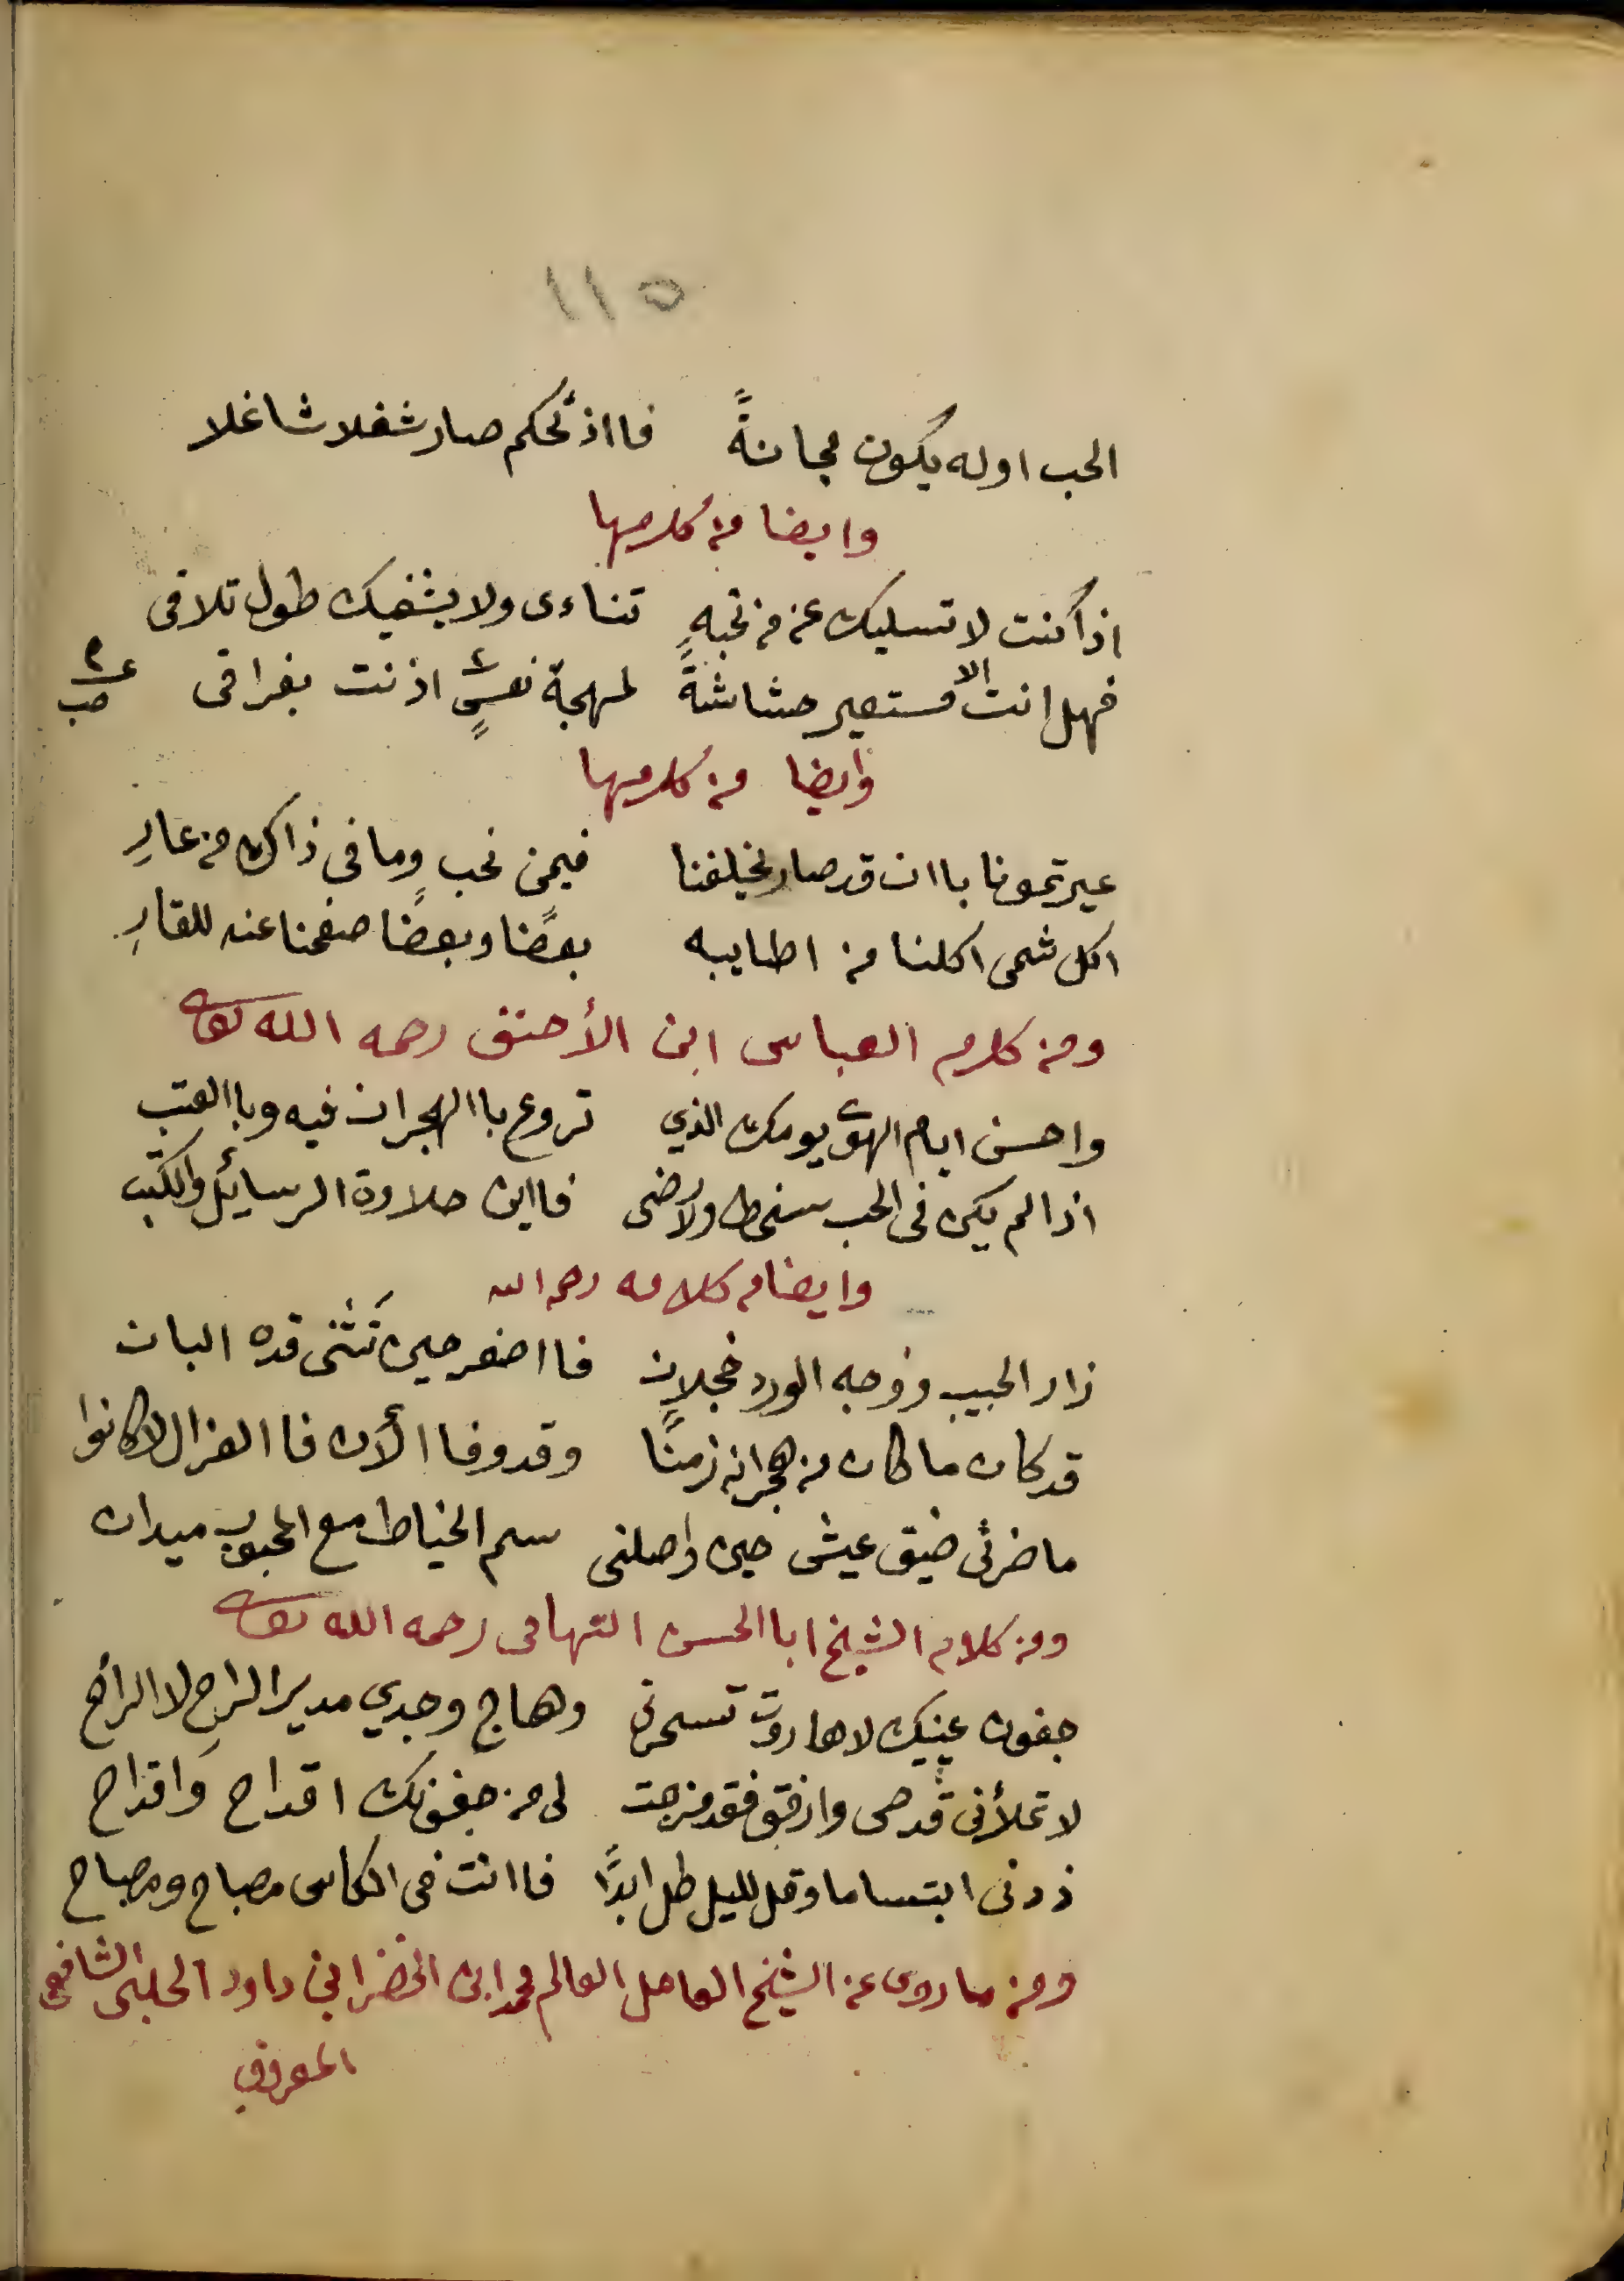 ١١٥
الحب اوله يكون مجانةً فااذتحكم صار شغلا شاغلا
وايضا من كلامها
اذا كنت لا تسليك عن من تحبهِ تناءى ولا يشفيك طول تلاقى
فهل انت الا مستعير حشاشةً لمهجة نفسٍ اذنت بفراقى
وايضا من كلامها
عيرتمونا باان قد صار يخلفنا فيمن نحب وما فى ذاك من عارِ
اكل شهى اكلنا من اطايبه بعضًا وبعضًا صفحنا عنه للفارِ
ومن كلام العباس ابن الأحنف رحمه الله تعالى
واحسن ايام الهوى يومك الذي تروع باالهجران فيه وباالعتب
اذا لم يكن فى الحب سخط ولا رضى فااين حلاوة الرسائل والكتب
وايضا من كلامه رحمه الله
زار الحبيب ووجه الورد خجلان فااصفر حين تثنى قده البان
قد كان ما كان من هجرانه زمنًا وقد وفا الأن فاالعزال لا كانوا
ما ضرنى ضيق عيش حين واصلنى سم الخياط مع المحبوب ميدان
ومن كلام الشيخ ابا الحسن التهامى رحمه الله تعالى
جفون عينيك لا هاروت تسحرنى وهاج وجدي مدير الراح لا الراح
لا تملأنى قدحى وارفق فقد مزجت لى من جفنك اقداح واقداح
زدنى ابتساما وقل لليل طل ابدًا فاانت فى الكاس مصباح ومصباح
ومن ما روى عن الشيخ العامل العالم محمد ابن الخضر ابن داود الحلبى الشافعى
المعروف